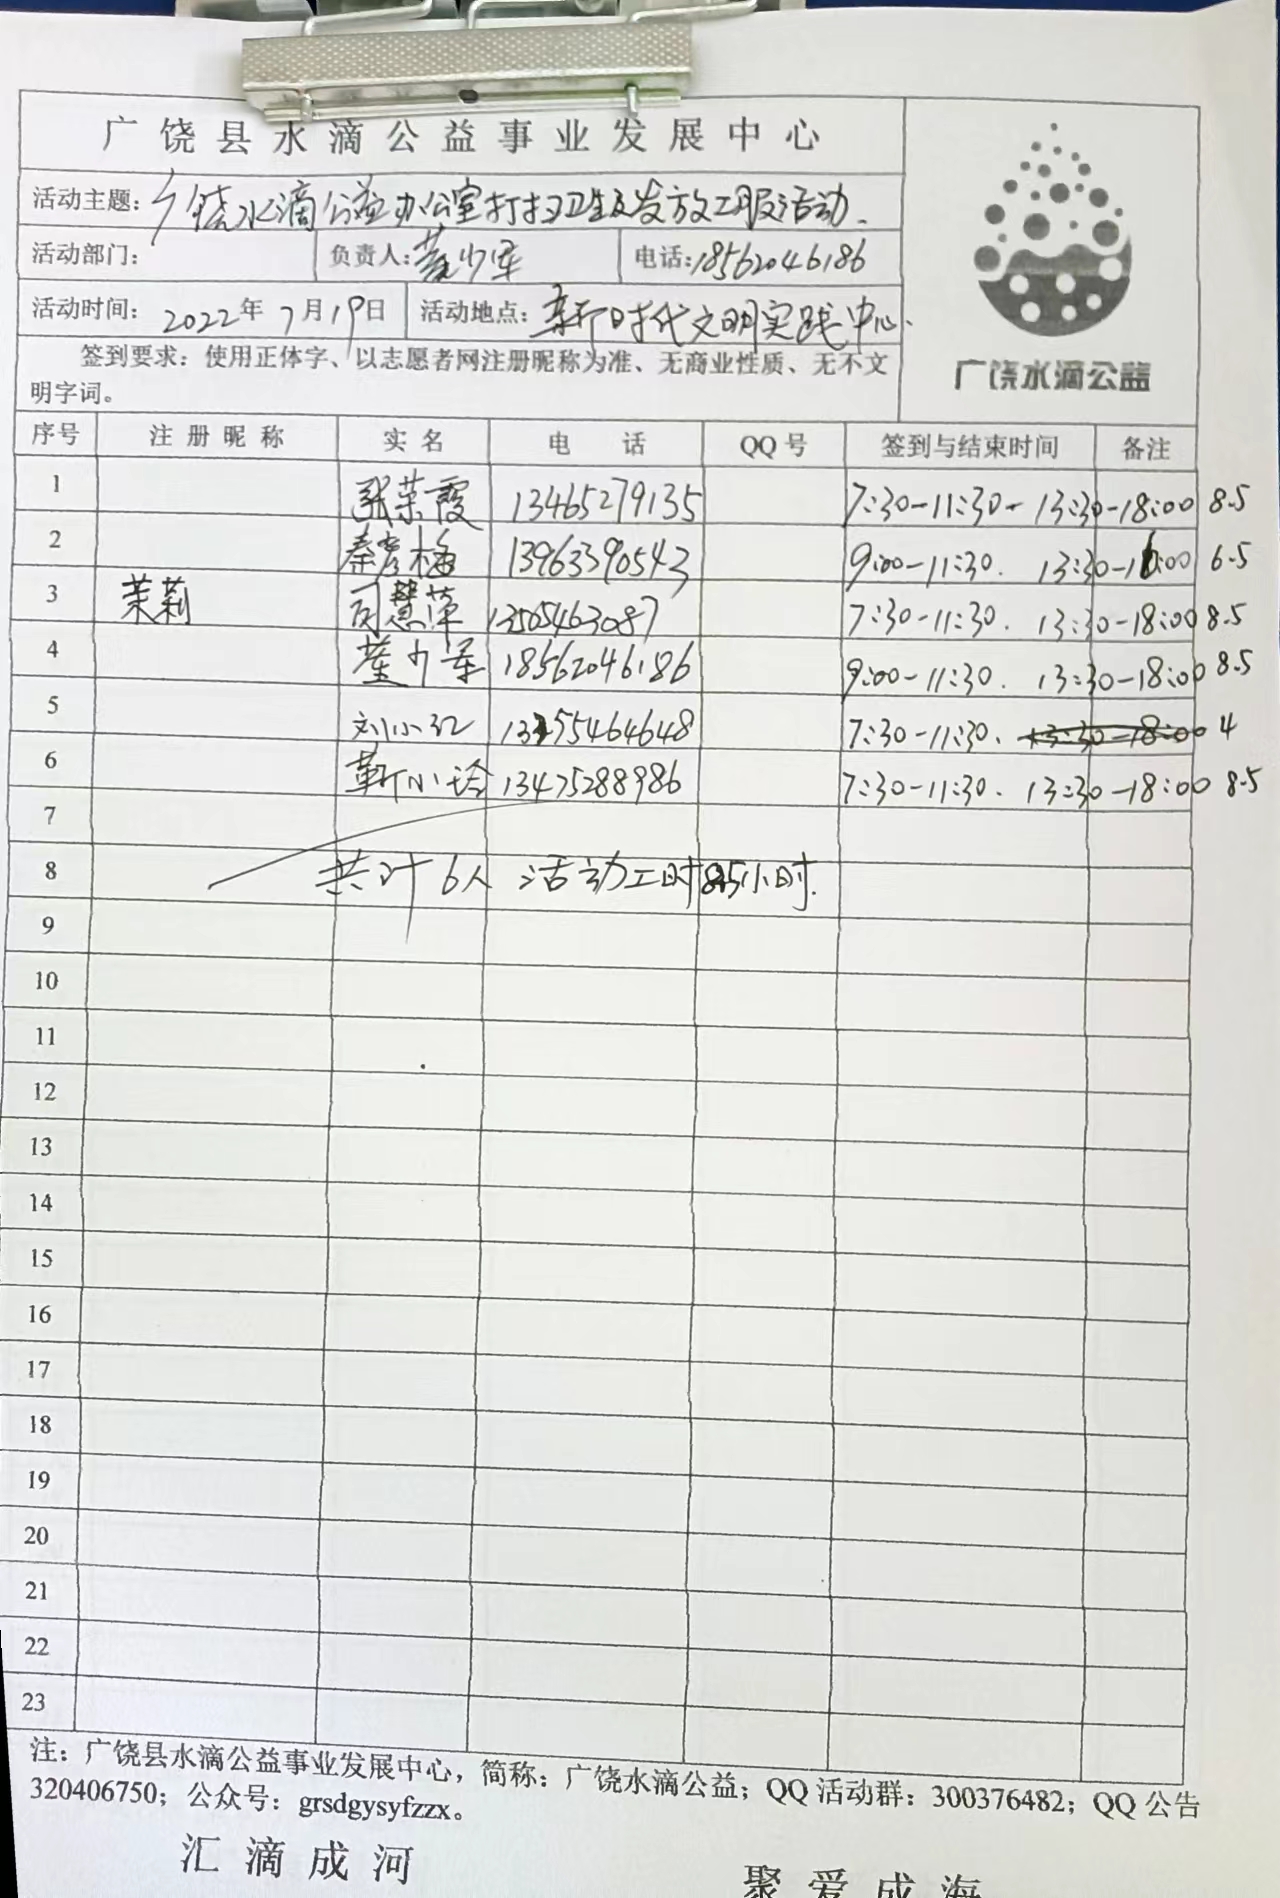 广饶县水滴公益事业发展中心
活动主题：广饶水滴公益办公室打扫卫生及发放工服活动.
活动部门： 负责人：董少军 电话：18562046186
活动时间：2022年7月19日 活动地点：新时代文明实践中心.
签到要求：使用正体字、以志愿者网注册昵称为准、无商业性质、无不文
明字词。
广饶水滴公益
序号 注册昵称 实名 电话 QQ号 签到与结束时间 备注
1 张荣霞 13465279135 7:30-11:30- 13:30-18:00 8.5
2 秦彦梅 13963390543 9:00-11:30. 13:30-1 :00 6.5
3 茉莉 司慧萍 13505463087 7:30-11:30. 13:30-18:00 8.5
4 董少军 18562046186 9:00-11:30. 13:30-18:00 8.5
5 刘小红 13 55464648 7:30-11:30. 13:30-18:00 4
6 靳小玲 13475288986 7:30-11:30. 13:30-18:00 8.5
7
8 共计6人 活动工时 小时.
9
10
11
12
13
14
15
16
17
18
19
20
21
22
23
注：广饶县水滴公益事业发展中心，简称：广饶水滴公益；QQ活动群：300376482；QQ公告
320406750；公众号：grsdgysyfzzx。
汇滴成河
聚爱成海